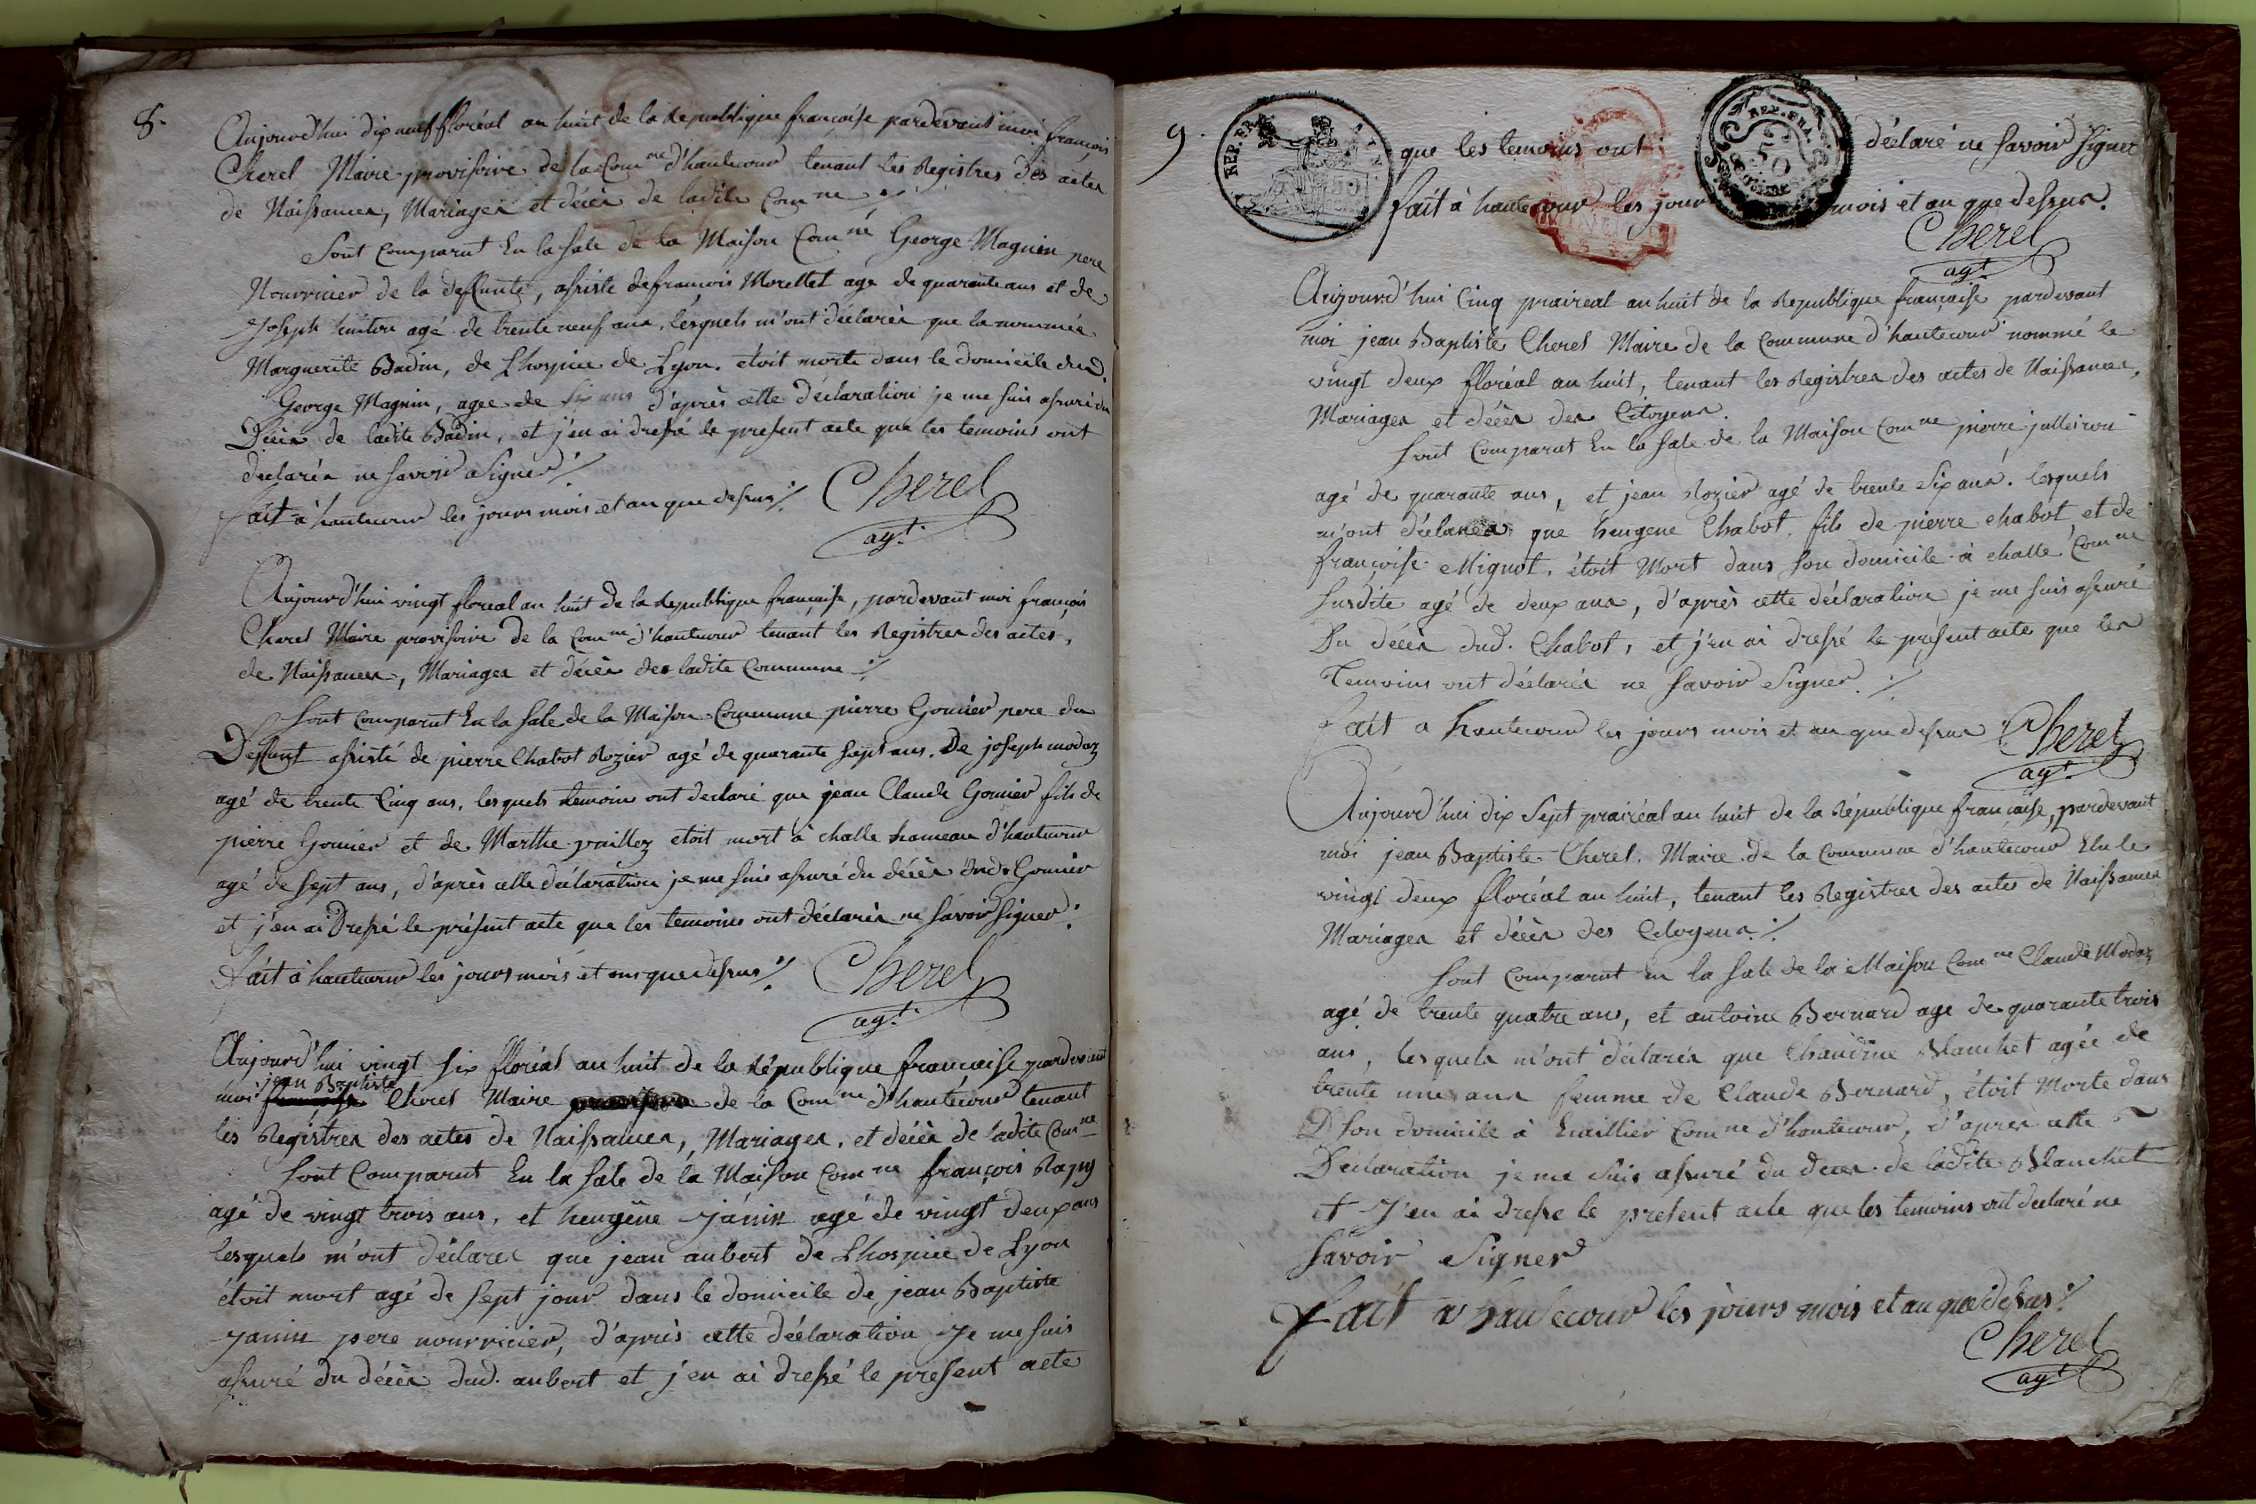 8.
Aujourd'hui dix neuf floréal an huit de la Republique françoise pardevant moi françois
Cherel Maire provisoire de la Comne d'hautecour tenant les Registres des actes
de Naissances, Mariages et décès de ladite Comne ./.
Sont Comparut En la sale de la Maison Comne George Magnin pere
Nourricier de la deffunte, assisté de francois Morellet agé de quarante ans et de
Joseph agé de trente neuf ans, lesquels m'ont déclarés que la nommée
Marguerite Badin, de Lhospice de Lyon. étoit morte dans le domicile dud.
George Magnin, agée de six ans d'après cette déclaration je me suis assuré du
Décès de ladite Badin, et j'en ai dressé le present acte que les temoins ont
declarés ne savoir Signer ./.
fait à hautecour les jours mois et an que dessus ./. Cherel
agt.
Aujourd'hui vingt floreal an huit de la Republique francaise, pardevant moi françois
Cherel Maire provisoire de la Comne d'hautecour tenant les Registres des actes,
de Naissances, Mariages et décès de ladite Commune ./.
Sont comparut En la sale de la Maison Commune pierre Gonier pere du
Deffunt assisté de pierre Chabot Rozier agé de quarante sept ans. De joseph modaz
agé de trente Cinq ans, lesquels temoins ont declaré que jean Claude Gonier fils de
pierre Gonier et de Marthe etoit mort à challe hameau d'hautecour
agé de sept ans, d'après cette déclaration je me suis assuré du décès dud. Gonier
et j'en ai Dressé le présent acte que les temoins ont déclarés ne savoir signer ./.
Fait à hautecour les jours mois et an que dessus ./. Cherel
agt.
Aujourd'hui vingt six floréal an huit de la République francaise pardevant
jean Baptiste
moi Cherel Maire de la Comne d'hautecour tenant
les Registres des actes de Naissances, Mariages, et décès de ladite Comne
Sont Comparut En la sale de la Maison Comne françois Rapy
agé de vingt trois ans, et heugene Janin agé de vingt deux ans
lesquels m'ont déclarés que jean aubert de Lhospice de Lyon
étoit mort agé de sept jour dans le domicile de jean Baptiste
Janin pere nourricier, d'après cette déclaration Je me suis
assuré du décès dud. aubert et j'en ai dressé le present acte
9.
REP. FRA.
REP. FRA. 50
que les temoins ont déclaré ne savoir signer
fait à hautecour les jour mois et an que dessus.
Cherel
agt.
Aujourd'hui Cinq praireal an huit de la Republique française pardevant
moi jean Baptiste Cherel Maire de la Commune d'hautecour nommé le
vingt deux floréal an huit, tenant les Registres des actes de Naissances,
Mariages et décès des Citoyens.
Sont Comparut En la sale de la Maison Comne pierre
agé de quarante ans, et jean Rozier agé de trente Six ans. lesquels
m'ont déclarés que heugene Chabot. fils de pierre chabot et de
françoise Mignot. étoit Mort dans son domicile à challe Comne
susdite agé de deux ans, d'après cette déclaration je me suis assuré
Du décès dud. Chabot, et j'en ai dressé le présent acte que les
Temoins ont déclarés ne savoir Signer ./.
fait a hautecour les jours mois et an que dessus Cherel
agt.
Aujourd'hui dix Sept prairéal an huit de la République française, pardevant
moi jean Baptiste Cherel. Maire de la Commune d'hautecour Elu le
vingt deux floréal an huit, tenant les Registres des actes de Naissances
Mariages et décès des Citoyens ./.
Sont comparut en la sale de la Maison Comne Claude Modaz
agé de trente quatre ans, et antoine Bernard age de quarante trois
ans, lesquels m'ont déclarés que Claudine Blanchet agée de
trente une ans femme de Claude Bernard, étoit Morte dans
Son domicile à Comne d'hautecour, d'après cette
Déclaration je me suis assuré du deces de ladite Blanchet
et J'en ai dresse le present acte que les temoins ont declaré ne
savoir Signer
Fait a hautecour les jours mois et an que dessus ./.
Cherel
agt.